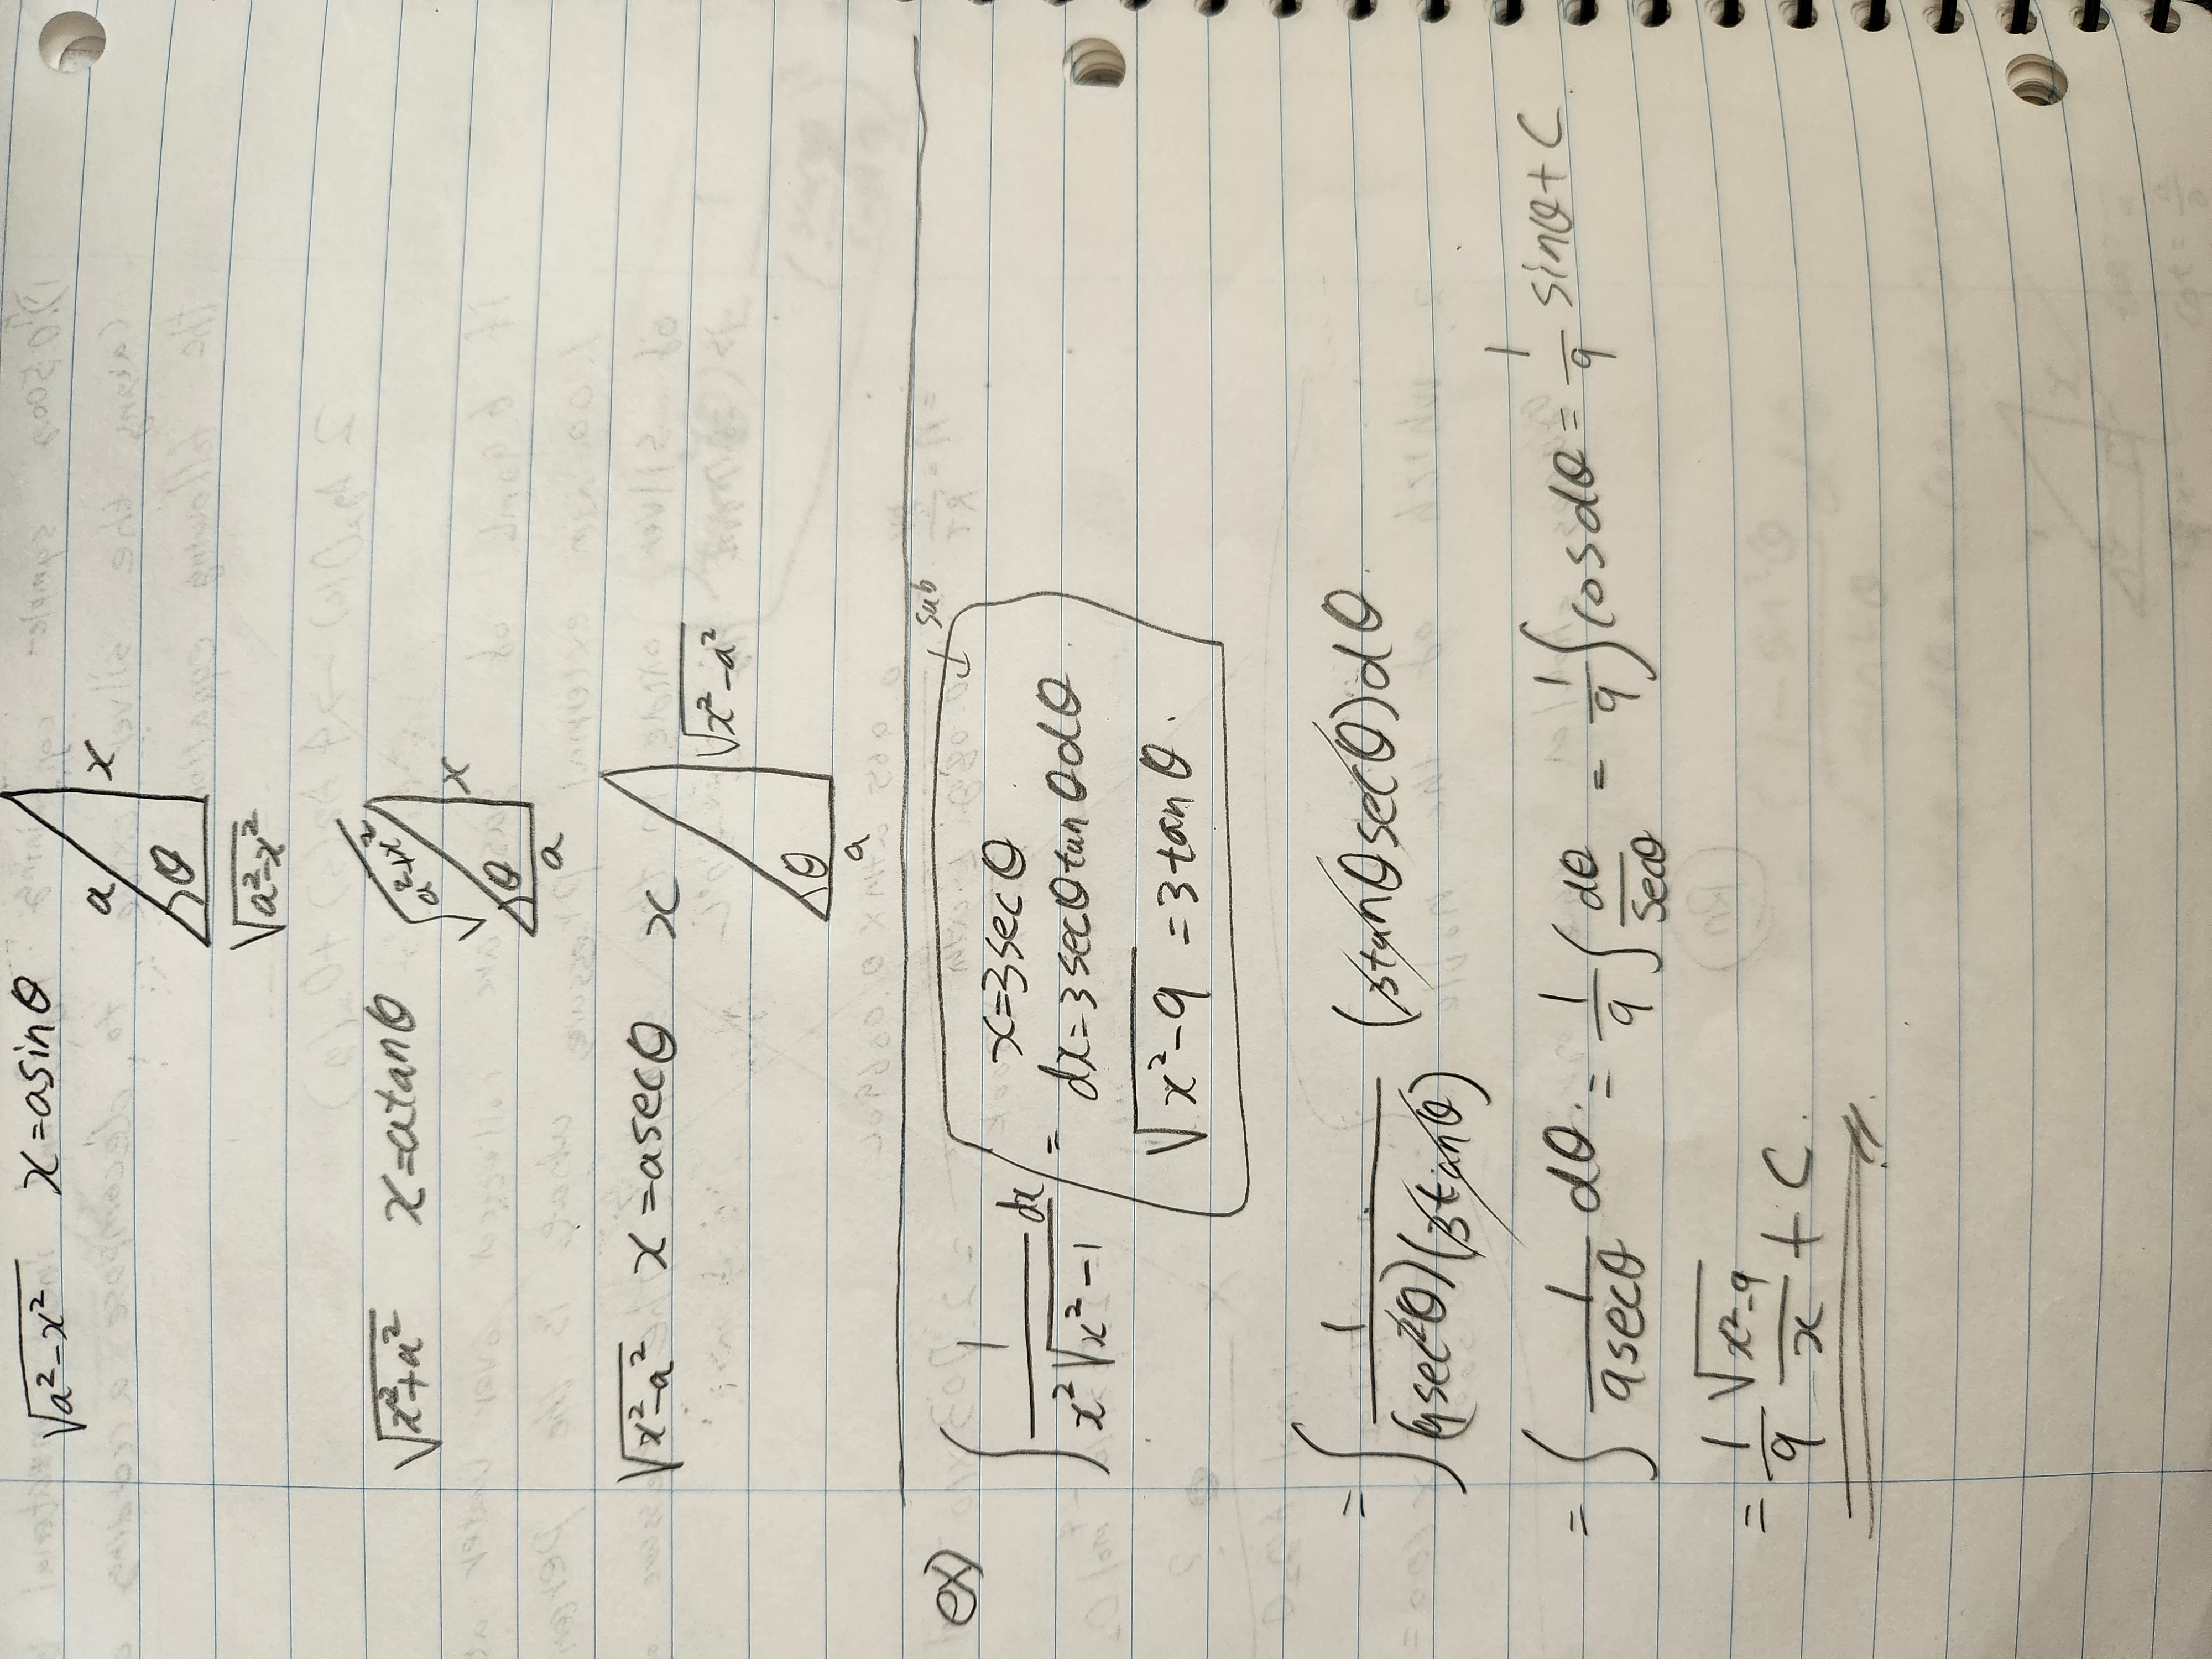 √(a²-x²) x=asinθ a θ x √(a²-x²)
√(x²+a²) x=atanθ √(a²+x²) θ x a
√(x²-a²) x=asecθ x θ √(x²-a²) a
t sub
ex) ∫ 1/(x²√(x²-1)) dx = x=3secθ
dx=3secθtanθdθ
√(x²-9) = 3tanθ.
= ∫ 1/((9sec²θ)(3tanθ)) (3tanθsecθ)dθ
= ∫ 1/(9secθ) dθ. = 1/9 ∫ dθ/secθ = 1/9 ∫cosdθ = 1/9 sinθ+C
= 1/9 √(x²-9)/x + C.